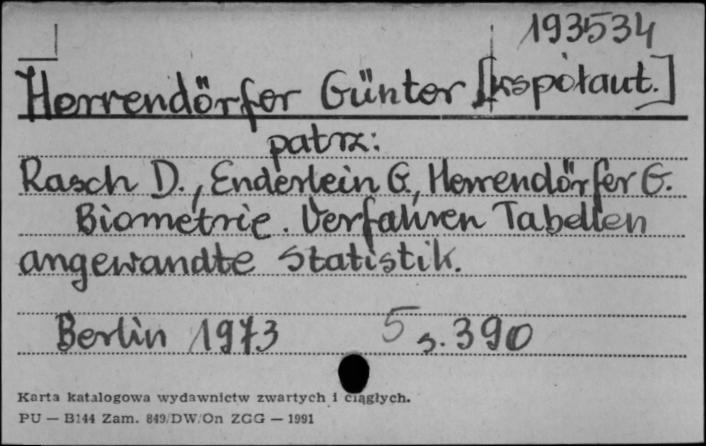 193534
Herrendörfer Günter [współaut.]
patrz:
Rasch D., Enderlein G., Herrendörfer G.
Biometrie. Verfahren Tabellen
angewandte Statistik.
Berlin 1973 5 s. 390
Karta katalogowa wydawnictw zwartych i ciągłych.
PU — B144 Zam. 849/DW/On ZGG — 1991